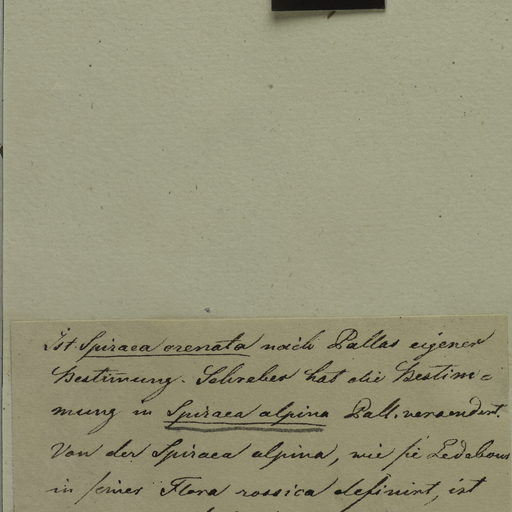 Ist Spiraea crenata nach Pallas eigener
Bestimung. Schreber hat die Bestim=
mung in Spiraea alpina Pall. veraendert.
Von der Spiraea alpina, wie sie Ledebour
in seiner Flora rossica definirt, ist